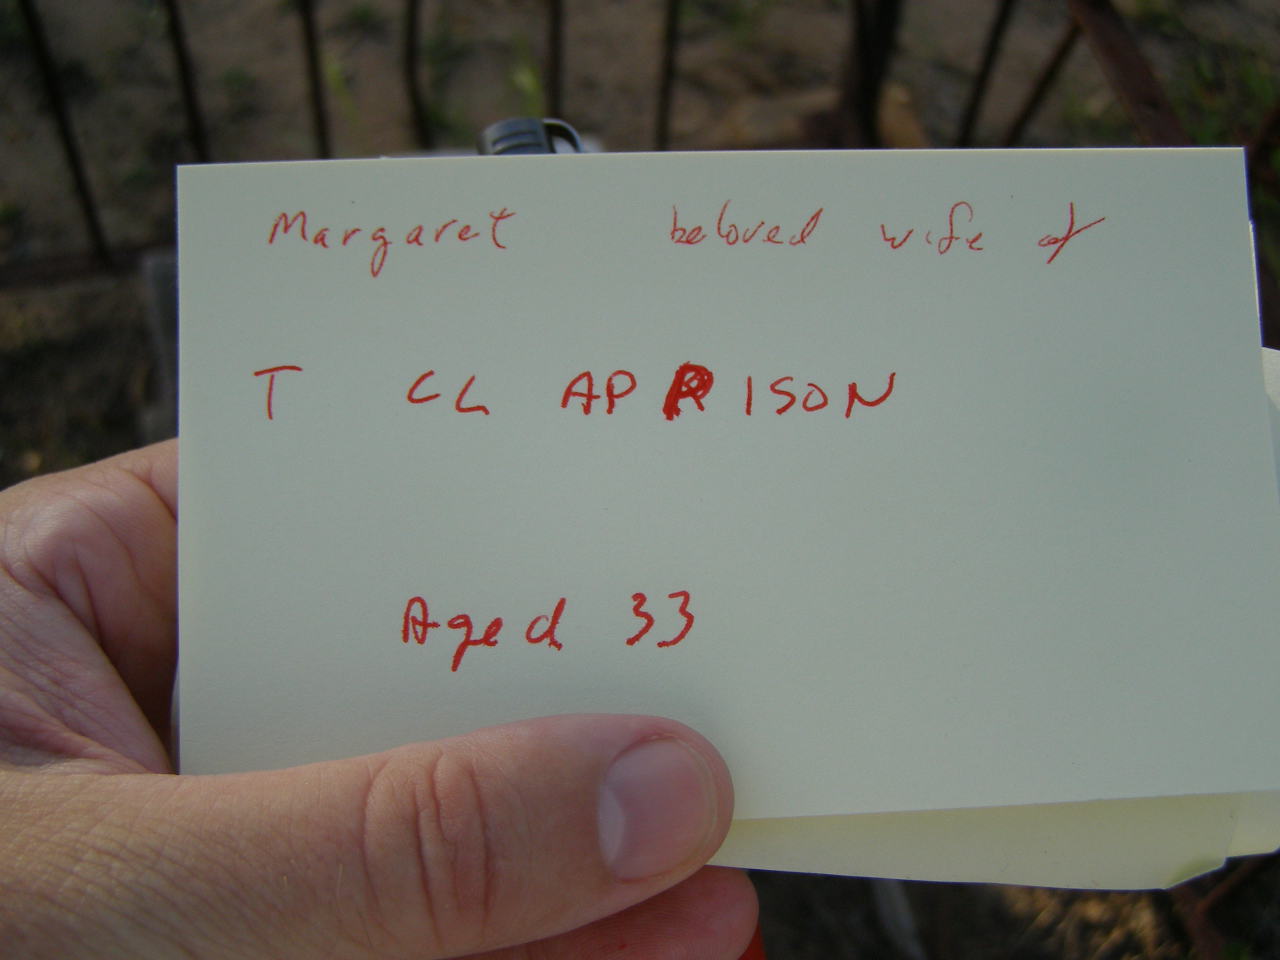 Margaret beloved wife of
T CL APRISON
Aged 33